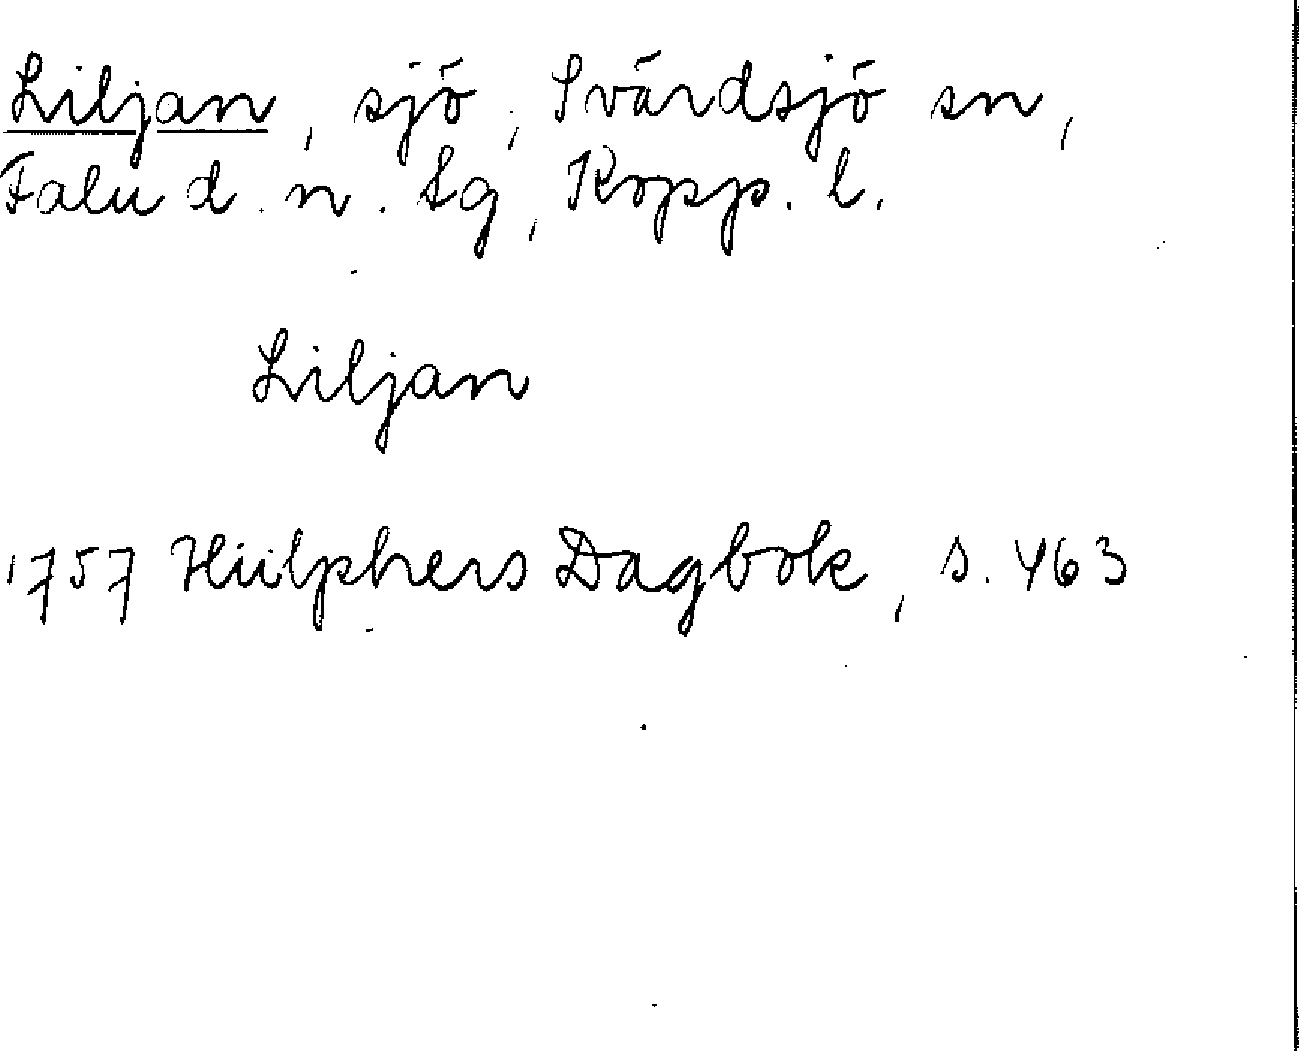 Liljan, sjö, Svärdsjö sn,
Falu d. n. tg, Kopp. l.
Liljan
1757 Hülphers Dagbok, s. 463